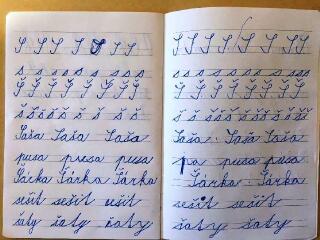 S S S S S S S
s s s s s s s s s
Š Š Š Š Š Š Š Š
š š š š š š š š
Saša Saša Saša
pusa pusa pusa
Šárka Šárka Šárka
sešit sešit sešit
šaty šaty šaty
S S S S S S S S
s s s s s s s s s
Š Š Š Š Š Š Š Š
š š š š š š š š š
Saša Saša Saša
pusa pusa
Šárka Šárka
sešit sešit
šaty šaty